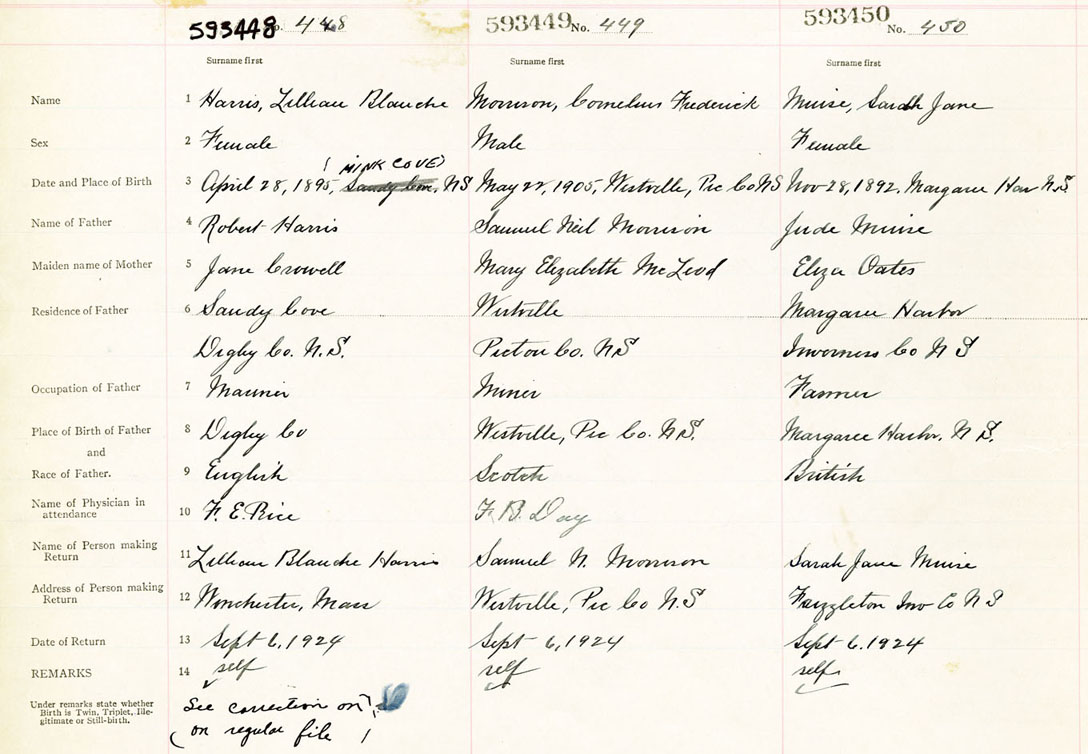 593448 No. 448 593449 No. 449 593450 No. 450
Surname first Surname first Surname first
Name 1 Harris, Lillian Blanche Morrison, Cornelius Frederick Muise, Sarah Jane
Sex 2 Female Male Female
(MINK COVE)
Date and Place of Birth 3 April 28, 1895, Sandy Cove, NS May 22, 1905, Westville, Pic Co NS Nov 28, 1892, Margaree Har N.S.
Name of Father 4 Robert Harris Samuel Neil Morrison Jude Muise
Maiden name of Mother 5 Jane Crowell Mary Elizabeth McLeod Eliza Oates
Residence of Father 6 Sandy Cove Westville Margaree Harbor
Digby Co. N.S. Pictou Co. NS Inverness Co N S
Occupation of Father 7 Mariner Miner Farmer
Place of Birth of Father 8 Digby Co Westville, Pic Co. N.S. Margaree Harbor, N S.
and
Race of Father. 9 English Scotch British
Name of Physician in
attendance 10 F. E. Rice F. B. Day
Name of Person making
Return 11 Lillian Blanche Harris Samuel N. Morrison Sarah Jane Muise
Address of Person making
Return 12 Winchester, Mass Westville, Pic Co N.S Inv Co N S
Date of Return 13 Sept 6, 1924 Sept 6, 1924 Sept 6, 1924
REMARKS 14 self self self
Under remarks state whether
Birth is Twin, Triplet, Ille-
gitimate or Still-birth.
See correction on
(on regular file)